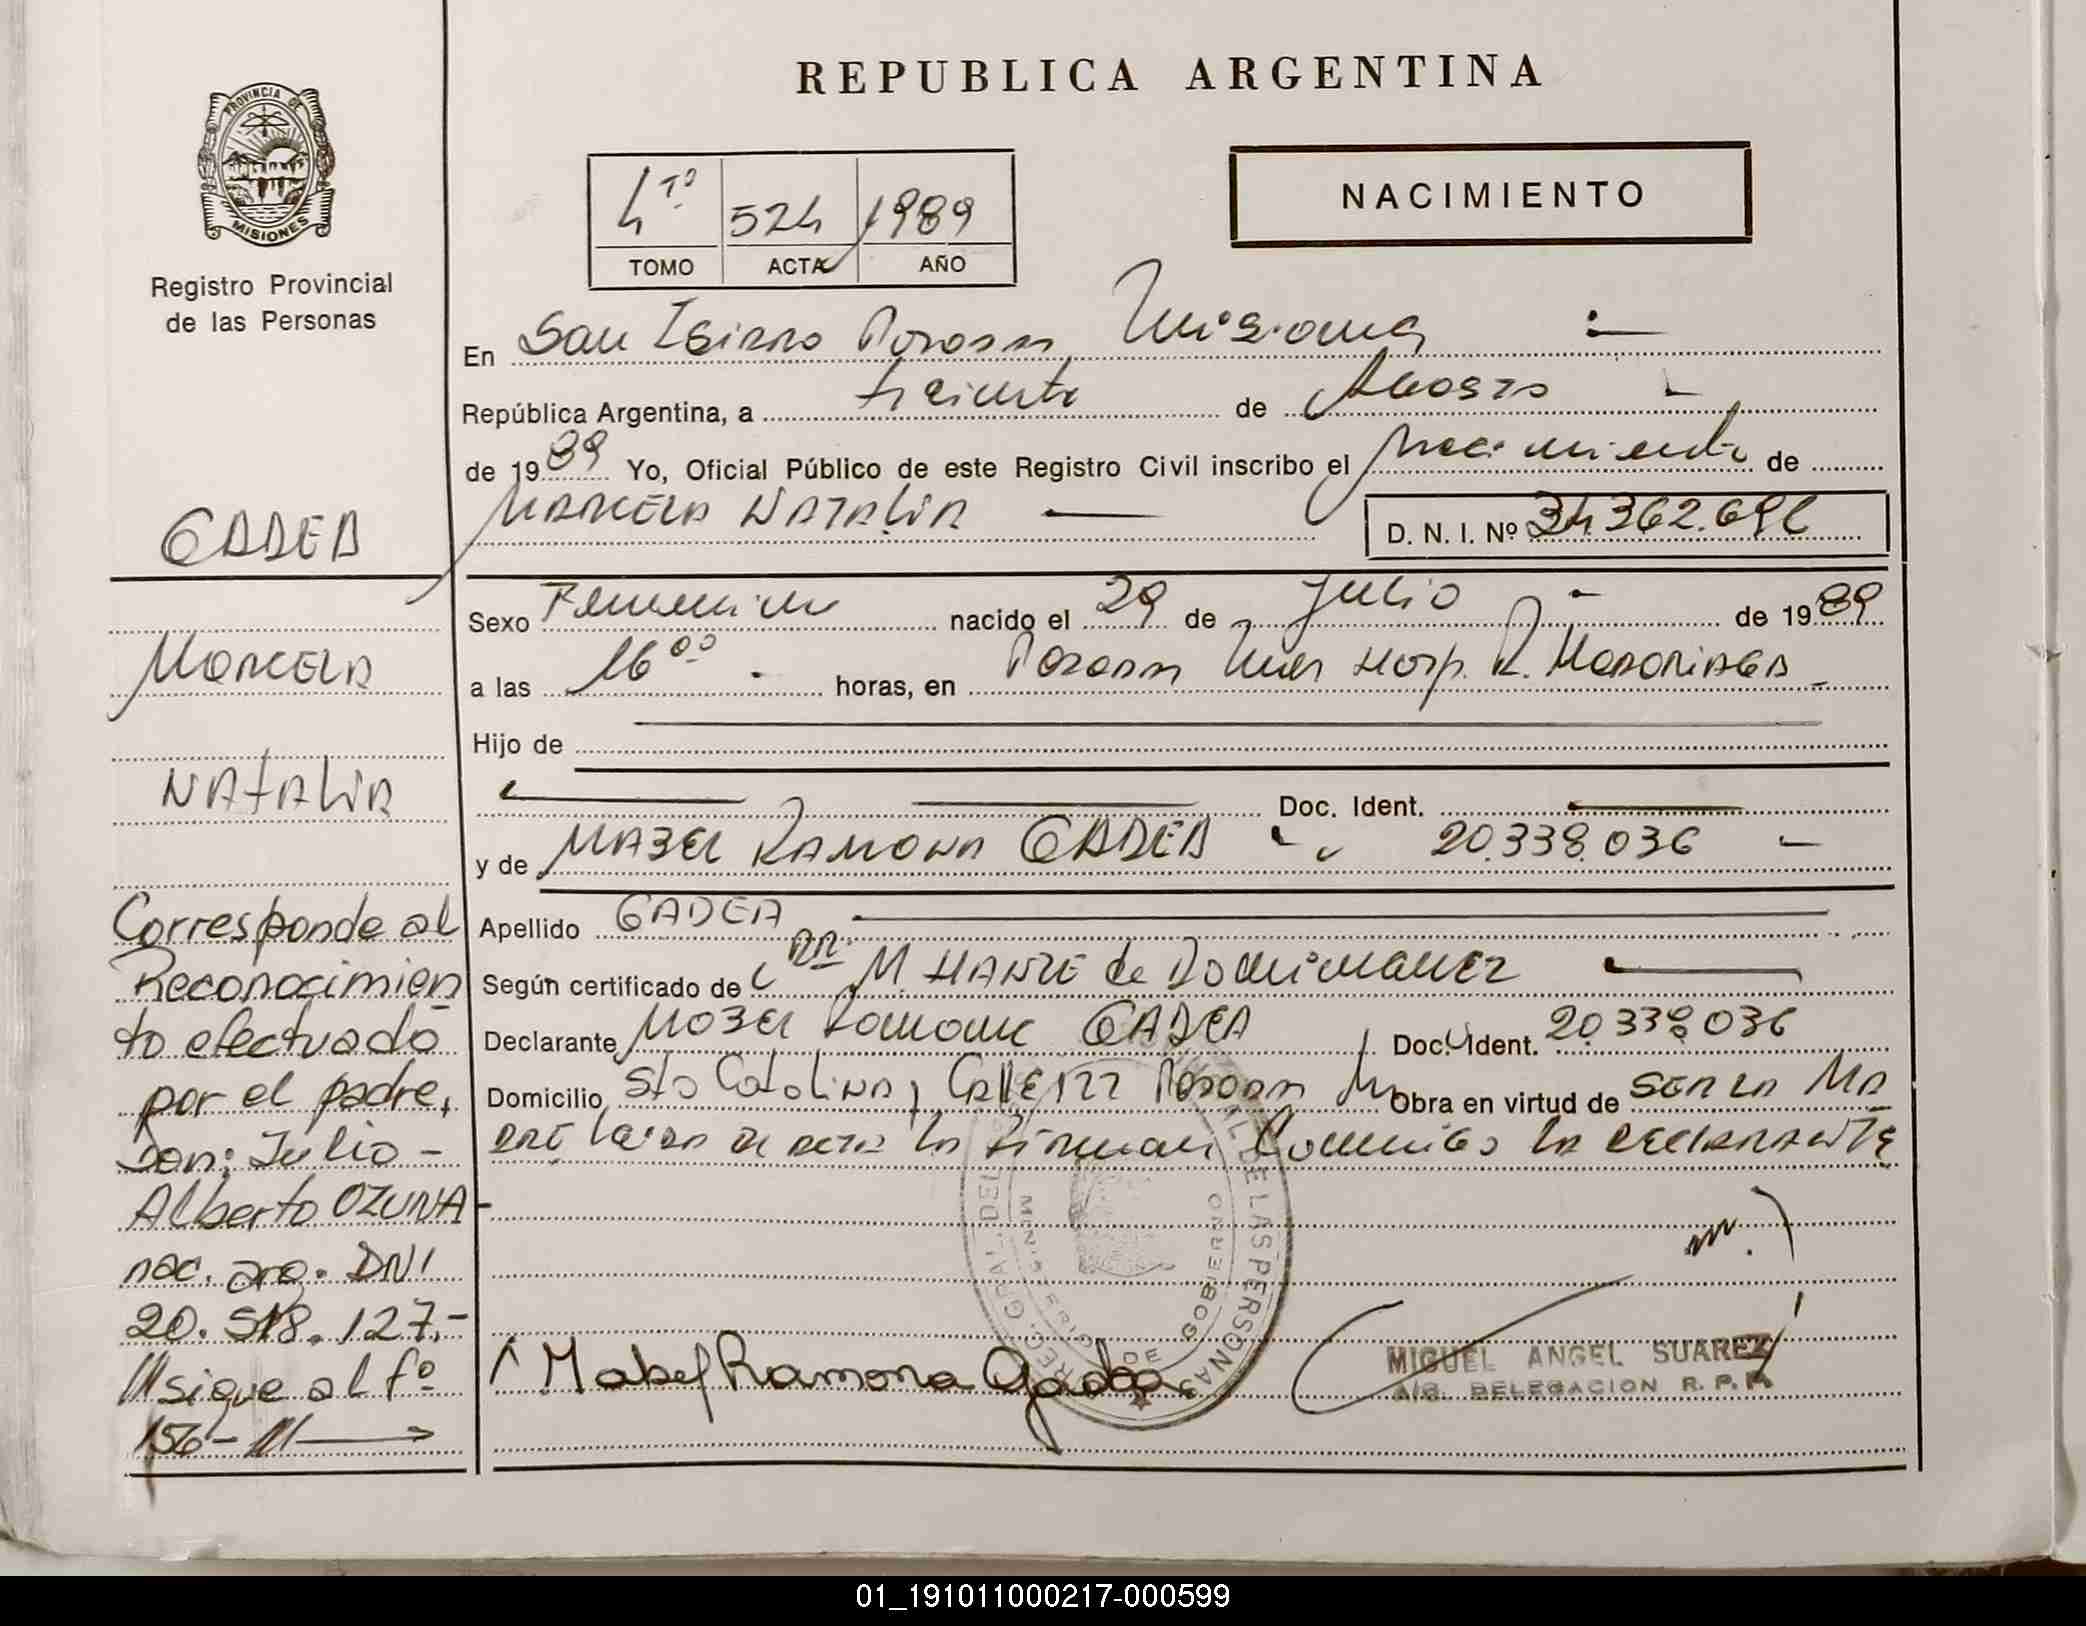 REPUBLICA ARGENTINA
PROVINCIA DE MISIONES
Registro Provincial
de las Personas
4to 524 1989
TOMO ACTA AÑO
NACIMIENTO
En San Isidro Posadas Misiones
República Argentina, a treinta de Agosto
de 1989 Yo, Oficial Público de este Registro Civil inscribo el Nacimiento de
MARCELA NATALIA D. N. I. Nº 34.362.696
Sexo Femenino nacido el 29 de Julio de 1989
a las 16 00 horas, en Posadas Mnes Hosp. R. Madariaga
Hijo de
Doc. Ident.
y de MABEL RAMONA GADEA " " 20.338.036
Apellido GADEA
Según certificado de Dra. M. de
Declarante Mabel Ramona GADEA Doc. Ident. 20.338.036
Domicilio Sta Catalina, Calle 122 Posadas Obra en virtud de SER LA MA
DRE Leida el acta la firman Conmigo la declarante
Mabel Ramona Gadea
MIGUEL ANGEL SUAREZ
A/C. DELEGACION R. P. P.
REG. GRAL. DE LAS PERSONAS
MINISTERIO DE GOBIERNO
GADEA
Marcela
NATALIA
Corresponde al
Reconocimien
to efectuado
por el padre,
Don: Julio -
Alberto OZUNA-
nac. arg. DNI
20.518.127.-
///sigue al fº
156-///
01_191011000217-000599